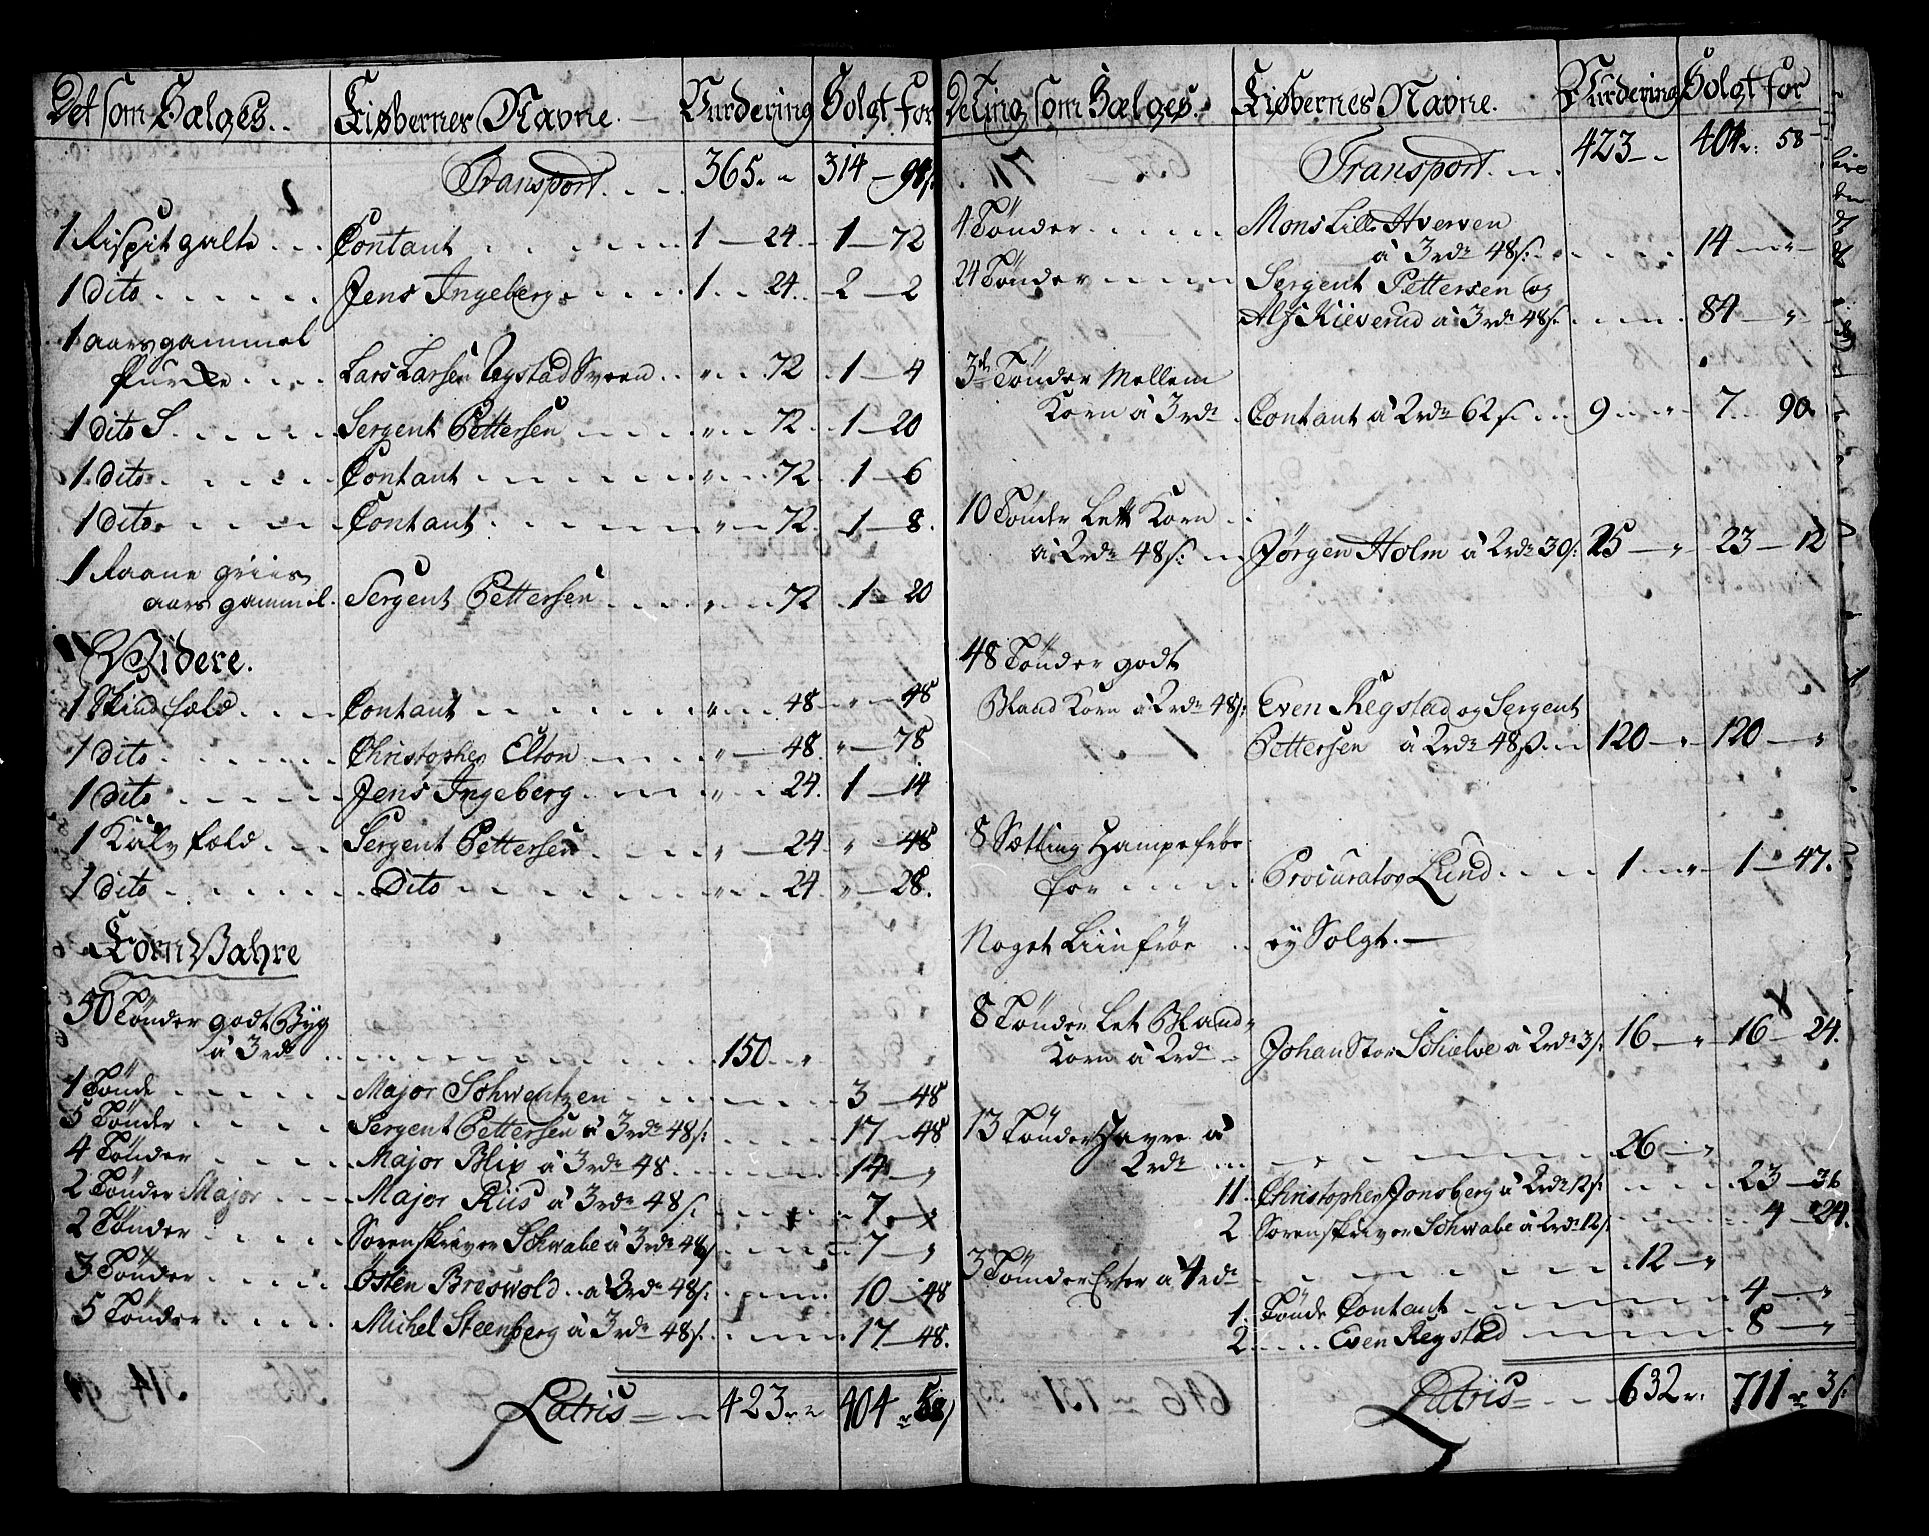 Det som Sælges. Kiøbernes Navne. Vurdering Solgt for
Transport 365 314 94
1 Rispit galte Contant 1 24 1 72
1 dito Jens Ingeberg 1 24 2 2
1 aarsgammel
Purke Lars Larsen Sveen 72 1 4
1 dito S. Sergent Pettersen 72 1 20
1 dito Contant 72 1 6
1 dito Contant 72 1 8
1 Raane griis
aars gammel Sergent Pettersen 72 1 20
Videre.
1 Skind fæld Contant 48 48
1 dito Christopher Elton 48 78
1 dito Jens Ingeberg 24 1 14
1 Kalv fæld Sergent Pettersen 24 48
1 dito Dito 24 28
Korn Vahre
50 Tønder godt Byg
à 3 rdr 150
1 Tønde Major Schwentzen 3 48
5 Tønder Sergent Pettersen à 3 rdr 48 s: 17 48
4 Tønder Major Blix à 3 rdr 48 14
2 Tønder Major Major Riis à 3 rdr 48 s: 7
2 Tønder Sorenskriver Schwabe à 3 rdr 48 s 7
3 Tønder Osten Breswold à 3 rdr 48 s: 10 48
5 Tønder Michel Steenberg à 3 rdr 48 s: 17 48
Latris 423 404 58
De Ting som Sælges. Kiøbernes Navne. Vurdering Solgt for
Transport 423 404 58
4 Tønder Mons Lille Hverven
à 3 rdr 48 s: 14
24 Tønder Sergent Pettersen og
Alf Kieverud à 3 rdr 48 s: 84
3de Tønder Mellem
Korn à 3 rdr Contant à 2 rdr 62 s 9 7 90
10 Tønder Lett Korn
à 2 rdr 48 s: Jørgen Holm à 2 rdr 30 s: 25 23 12
48 Tønder godt
Bland Korn à 2 rdr 48 s: Even Regstad og Sergent
Pettersen à 2 rdr 48 s: 120 120
8 Sætting Hampefrøe
for Procurator Lund 1 1 47
Noget Liinfrøe ey Solgt.
8 Tønder Let Bland-
Korn à 2 rdr Johan Stor Schielve à 2 rdr 3 s: 16 16 24
13 Tønder Havre à
2 rdr 26
11 Christopher Jonsberg à 2 rdr 12 s: 23 36
2 Sorenskriver Schwabe à 2 rdr 12 s: 4 24
3 Tønder Erter à 4 rdr 12
1. Tønde Contant 4
2 Even Regstad 8
Latris 632 711 3 s: